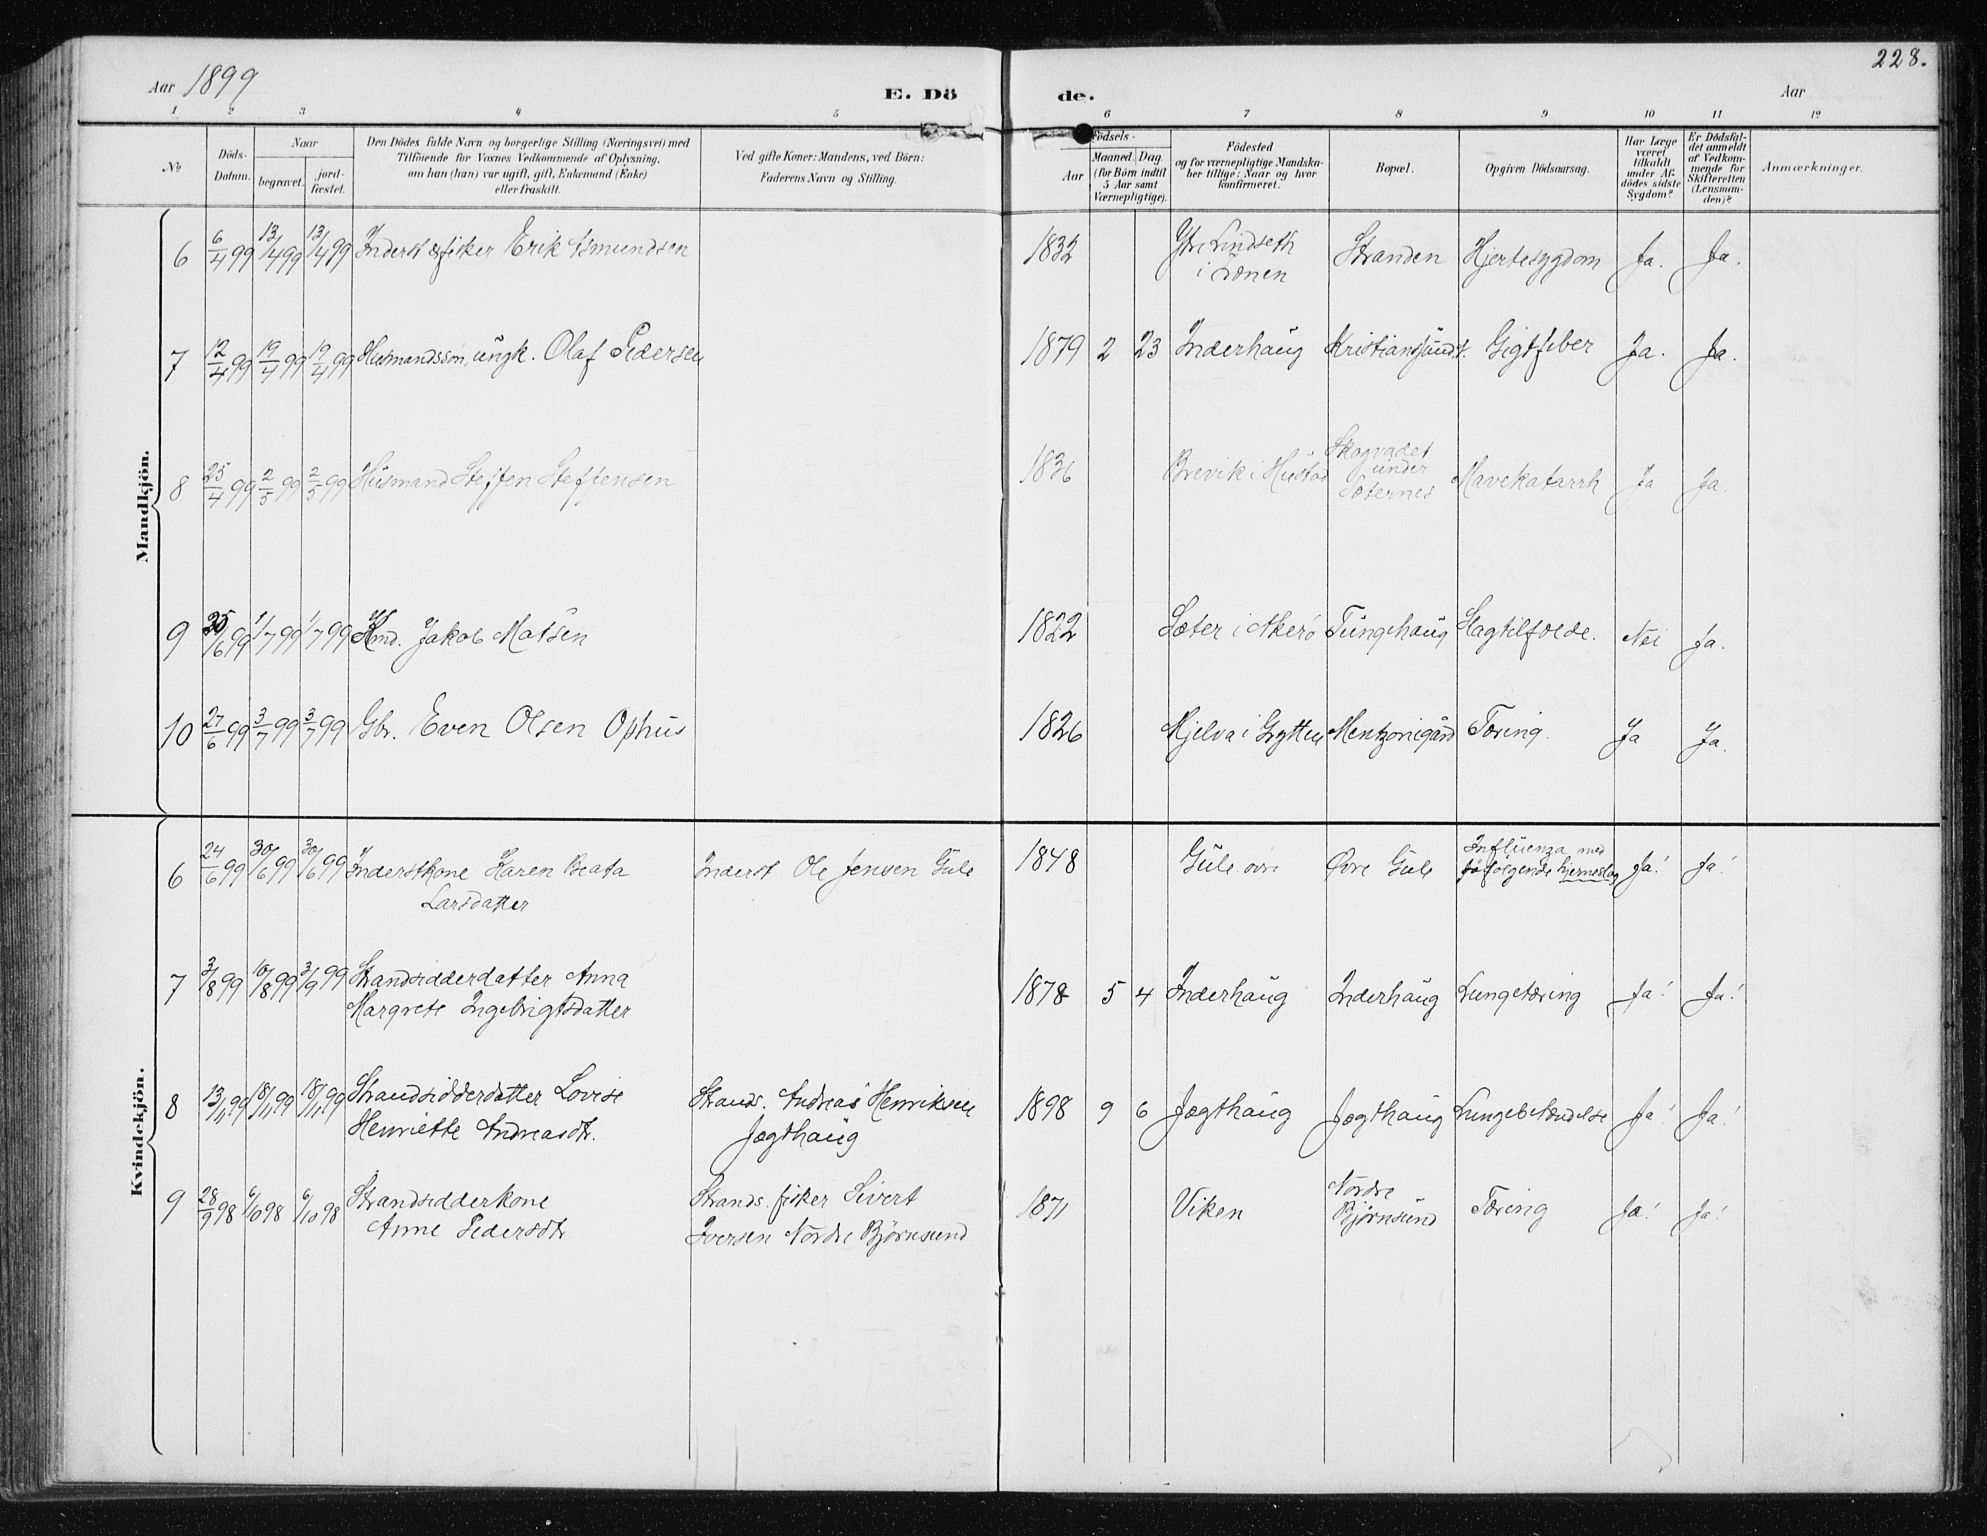 Aar 1899
E. Dö
de.
Aar
228.
1 2 3 4 5 6 7 8 9 10 11 12
No
Döds-
Datum.
Naar
begravet.
jord-
fæstet.
Den Dödes fulde Navn og borgerlige Stilling (Næringsvei) med
Tilföiende for Voxnes Vedkommende af Oplysning,
om han (hun) var ugift, gift, Enkemand (Enke)
eller fraskilt.
Ved gifte Koner: Mandens, ved Börn:
Faderens Navn og Stilling.
Födsels-
Aar
Maaned. Dag
(for Börn indtil
5 Aar samt
Værnepligtige).
Födested
og for værnepligtige Mandska-
ber tillige: Naar og hvor
konfirmeret.
Bopæl.
Opgiven Dödsaarsag.
Har Læge
været
tilkaldt
under Af-
dödes sidste
Sygdom?
Er Dödsfal-
det anmeldt
af Vedkom-
mende for
Skifteretten
(Lensman-
den)?
Anmærkninger.
Mandkjön.
6 6/4 99 13/4 99 13/4 99 Inderst & fisker Erik Asmundsen 1832 Ytre Lindseth
i Frænen Stranden Hjertesygdom Ja. Ja.
7 12/4 99 19/4 99 19/4 99 Husmandssøn, ungk. Olaf Pedersen 1879 2 23 Inderhaug Kristiansund Gigtfeber Ja. Ja.
8 25/4 99 2/5 99 2/5 99 Husmand Steffen Steffensen 1836 Brevik i Hustad Skogvadet
under
Sæternes Mavekatarrh Ja Ja.
9 25/6 99 1/7 99 1/7 99 Kmd. Jakob Matsen 1822 Sæter i Akerø Tungehaug Slagtilfælde. Nei Ja.
10 27/6 99 3/7 99 3/7 99 Gbr. Even Olsen Ophus 1826 Mjelva i Grytten Mentzonigård Tæring. Ja Ja.
Kvindekjön.
6 24/6 99 30/6 99 30/6 99 Inderstkone Karen Beata
Larsdatter Inderst Ole Jensen Gule 1848 Gule øvre Øvre Gule Influenza med
påfølgende hjerneslag Ja! Ja!
7 3/8 99 10/8 99 3/9 99 Strandsidderdatter Anna
Margrete Ingebrigtsdatter 1878 5 4 Inderhaug Inderhaug Lungetæring Ja! Ja!
8 13/11 99 18/11 99 18/11 99 Strandsidderdatter Lovise
Henriette Andreasdtr. Strands. Andreas Henriksen
Jægthaug 1898 9 6 Jægthaug Jægthaug Lungebetændelse Ja! Ja!
9 28/9 98 6/10 98 6/10 98 Strandsidderkone
Anne Pedersdtr. Strands. fisker Sivert
Iversen Nordre Bjørnsund 1871 Viken Nordre
Bjørnsund Tæring Ja! Ja!